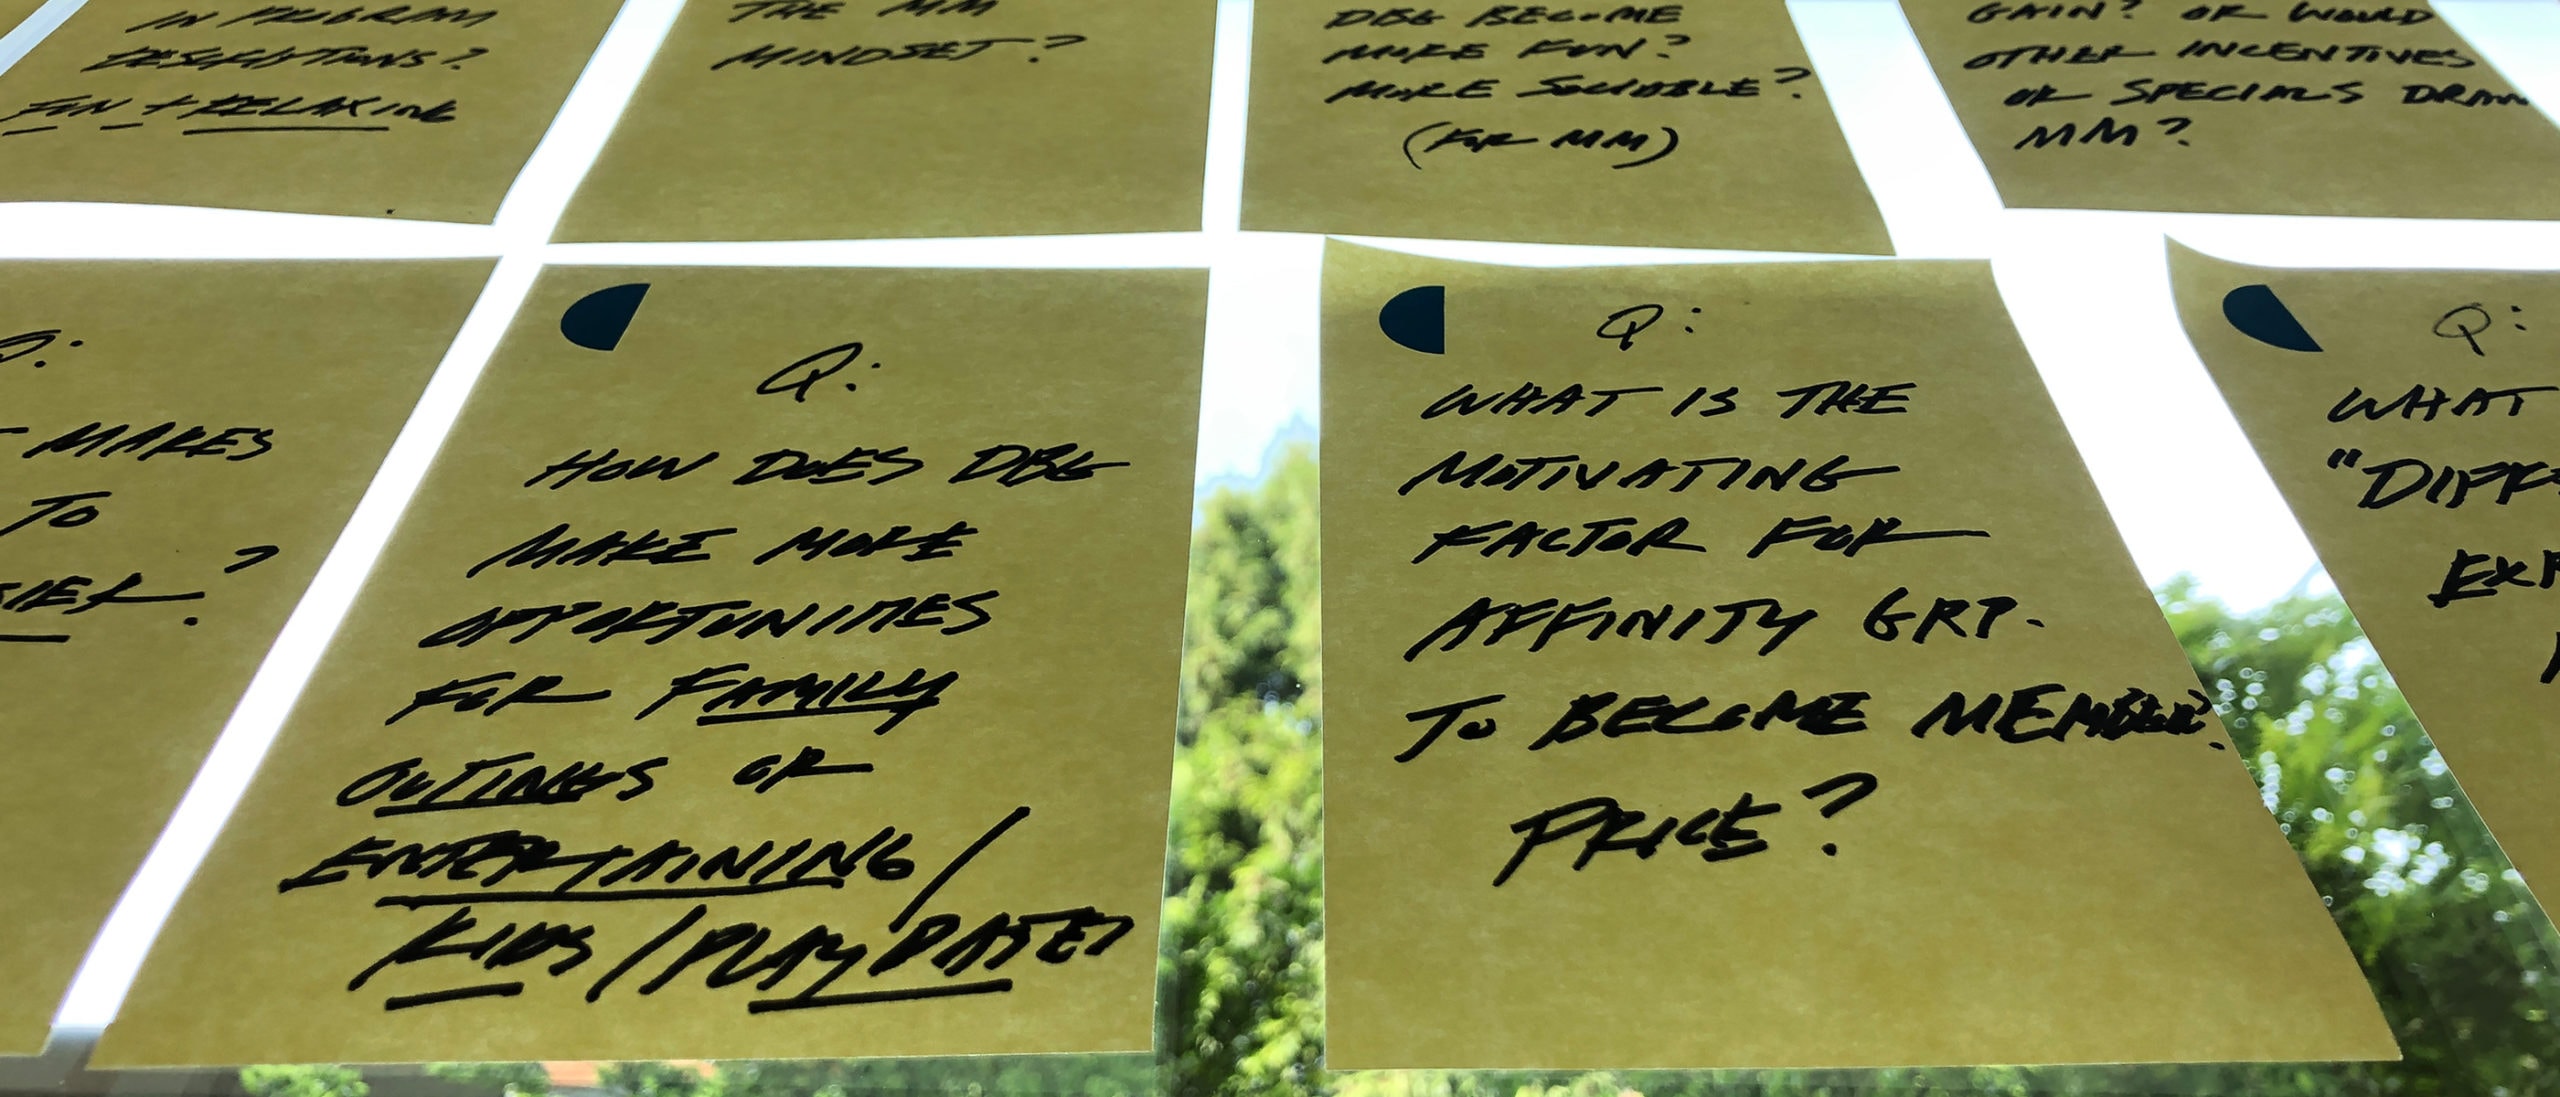 IN PROGRAM
DESCRIPTIONS?
FUN + RELAXING
THE MM
MINDSET?
DBG BECOME
MORE FUN?
MORE SOCIABLE?
(FOR MM)
GAIN? OR WOULD
OTHER INCENTIVES
OR SPECIALS DRAW
MM?
Q:
MAKES
TO
?
Q:
HOW DOES DBG
MAKE MORE
OPPORTUNITIES
FOR FAMILY
OUTINGS OR
ENTERTAINING/
KIDS/PLAY DATES
Q:
WHAT IS THE
MOTIVATING
FACTOR FOR
AFFINITY GRP.
TO BECOME MEMBER?
PRICE?
Q:
WHAT